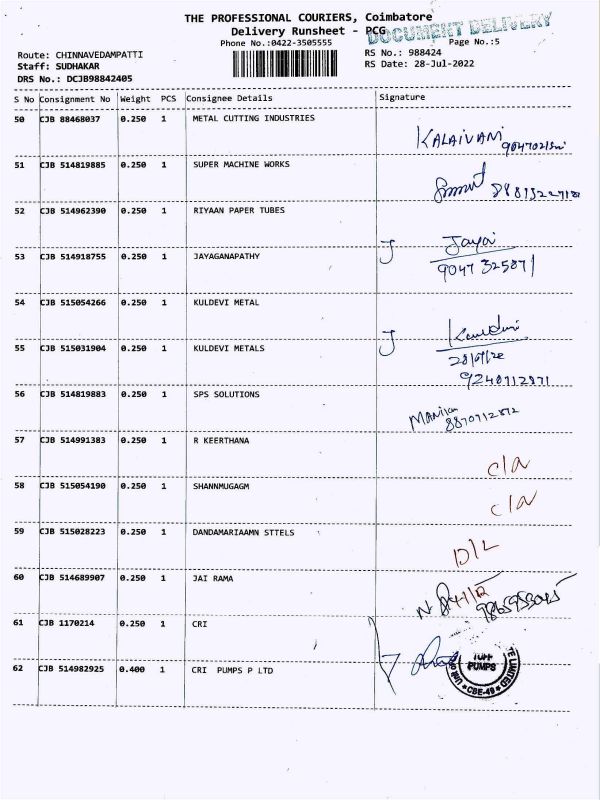 THE PROFESSIONAL COURIERS, Coimbatore
Delivery Runsheet - PCG
DOCUMENT DELIVERY
Phone No.:0422-3505555
Page No.:5
Route: CHINNAVEDAMPATTI
RS No.: 988424
Staff: SUDHAKAR
RS Date: 28-Jul-2022
DRS No.: DCJB98842405
S No Consignment No Weight PCS Consignee Details Signature
50 CJB 88468037 0.250 1 METAL CUTTING INDUSTRIES
KALAIVANI
51 CJB 514819885 0.250 1 SUPER MACHINE WORKS
52 CJB 514962390 0.250 1 RIYAAN PAPER TUBES
Jayai
53 CJB 514918755 0.250 1 JAYAGANAPATHY
9047325871
54 CJB 515054266 0.250 1 KULDEVI METAL
55 CJB 515031904 0.250 1 KULDEVI METALS
9240712871
56 CJB 514819883 0.250 1 SPS SOLUTIONS
8870712872
57 CJB 514991383 0.250 1 R KEERTHANA
c/a
58 CJB 515054190 0.250 1 SHANNMUGAGM
c/a
59 CJB 515028223 0.250 1 DANDAMARIAAMN STTELS
D/L
60 CJB 514689907 0.250 1 JAI RAMA
61 CJB 1170214 0.250 1 CRI
62 CJB 514982925 0.400 1 CRI PUMPS P LTD
PUMPS
CBE-49